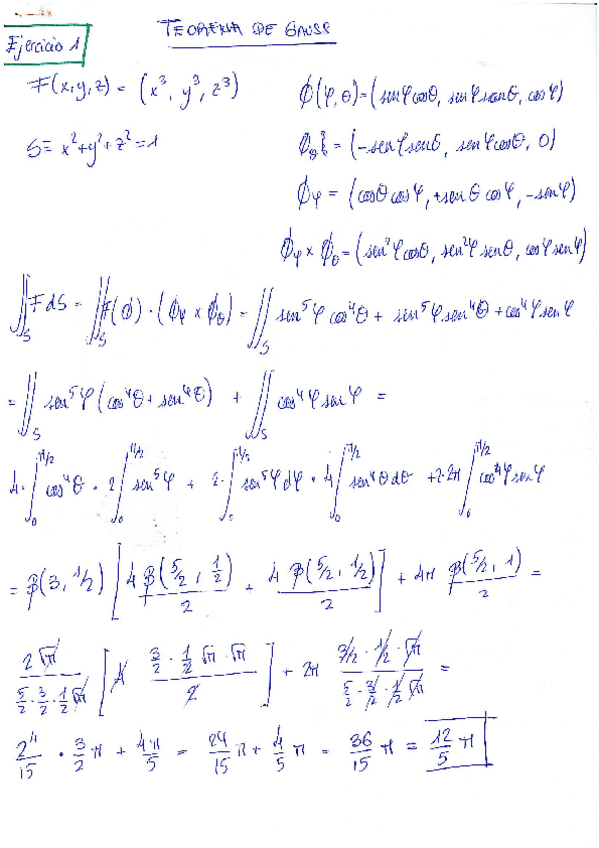 TEOREMA DE GAUSS
Ejercicio 1
F(x,y,z) = (x³, y³, z³)
S ≡ x²+y²+z²=1
ϕ(φ,θ)=(senφcosθ, senφsenθ, cosφ)
ϕ_θ = (-senφsenθ, senφcosθ, 0)
ϕ_φ = (cosθcosφ, +senθcosφ, -senφ)
ϕ_φ × ϕ_θ = (sen²φcosθ, sen²φsenθ, cosφsenφ)
∬_S F dS = ∬_S F(ϕ)·(ϕ_φ × ϕ_θ) = ∬_S sen⁵φ cos⁴θ + sen⁵φ sen⁴θ + cos⁴φ senφ
= ∬_S sen⁵φ (cos⁴θ + sen⁴θ) + ∬_S cos⁴φ senφ =
4·∫_0^{π/2} cos⁴θ · 2∫_0^{π/2} sen⁵φ + 2·∫_0^{π/2} sen⁵φ dφ · 4∫_0^{π/2} sen⁴θ dθ + 2·2π∫_0^{π/2} cos⁴φ senφ
= β(3, 1/2) [4 β(5/2, 1/2)/2 + 4 β(5/2, 1/2)/2] + 4π β(5/2, 1)/2 =
2√π / (5/2 · 3/2 · 1/2 √π) [4 (3/2 · 1/2 √π · √π)/2] + 2π (3/2 · 1/2 · √π)/(5/2 · 3/2 · 1/2 √π) =
2⁴/15 · 3/2 π + 4π/5 = 24/15 π + 4/5 π = 36/15 π = 12/5 π